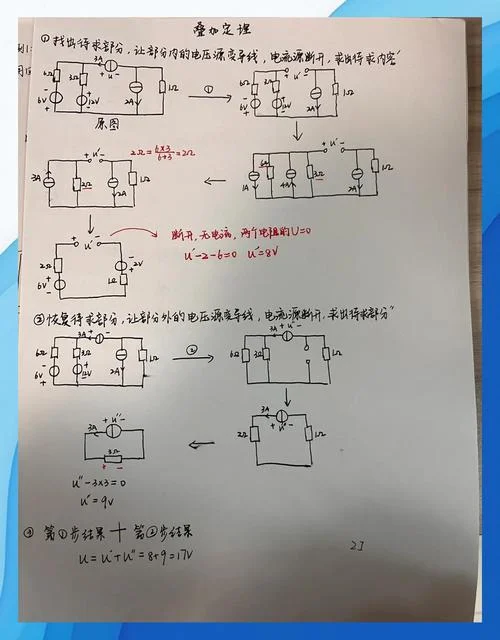 叠加定理
① 找出待求部分,让部分内的电压源变导线,电流源断开,求出待求内容"
3A + u -
6Ω 3Ω 2A 1Ω
6V 12V
原图
①
+ u' -
6Ω 3Ω 1Ω
6V 12V 2A
3A + u' - 1Ω
2Ω 2A
2Ω = 6×3/6+3 = 2Ω
+ u' -
1A 6Ω 4A 3Ω 2A 1Ω
+ u' -
2Ω 2V
6V 1Ω
断开,无电流,两个电阻的U=0
u'-2-6=0 u'=8V
② 恢复待求部分,让部分外的电压源变导线,电流源断开,求出待求部分"
3A + u -
6Ω 3Ω 2A 1Ω
6V 12V
②
3A + u'' -
6Ω 3Ω 1Ω
3A + u'' -
2Ω 1Ω
+ u'' -
3A
3Ω
+ -
u''-3×3=0
u''=9V
③ 第①步结果 + 第②步结果
u=u'+u''=8+9=17V